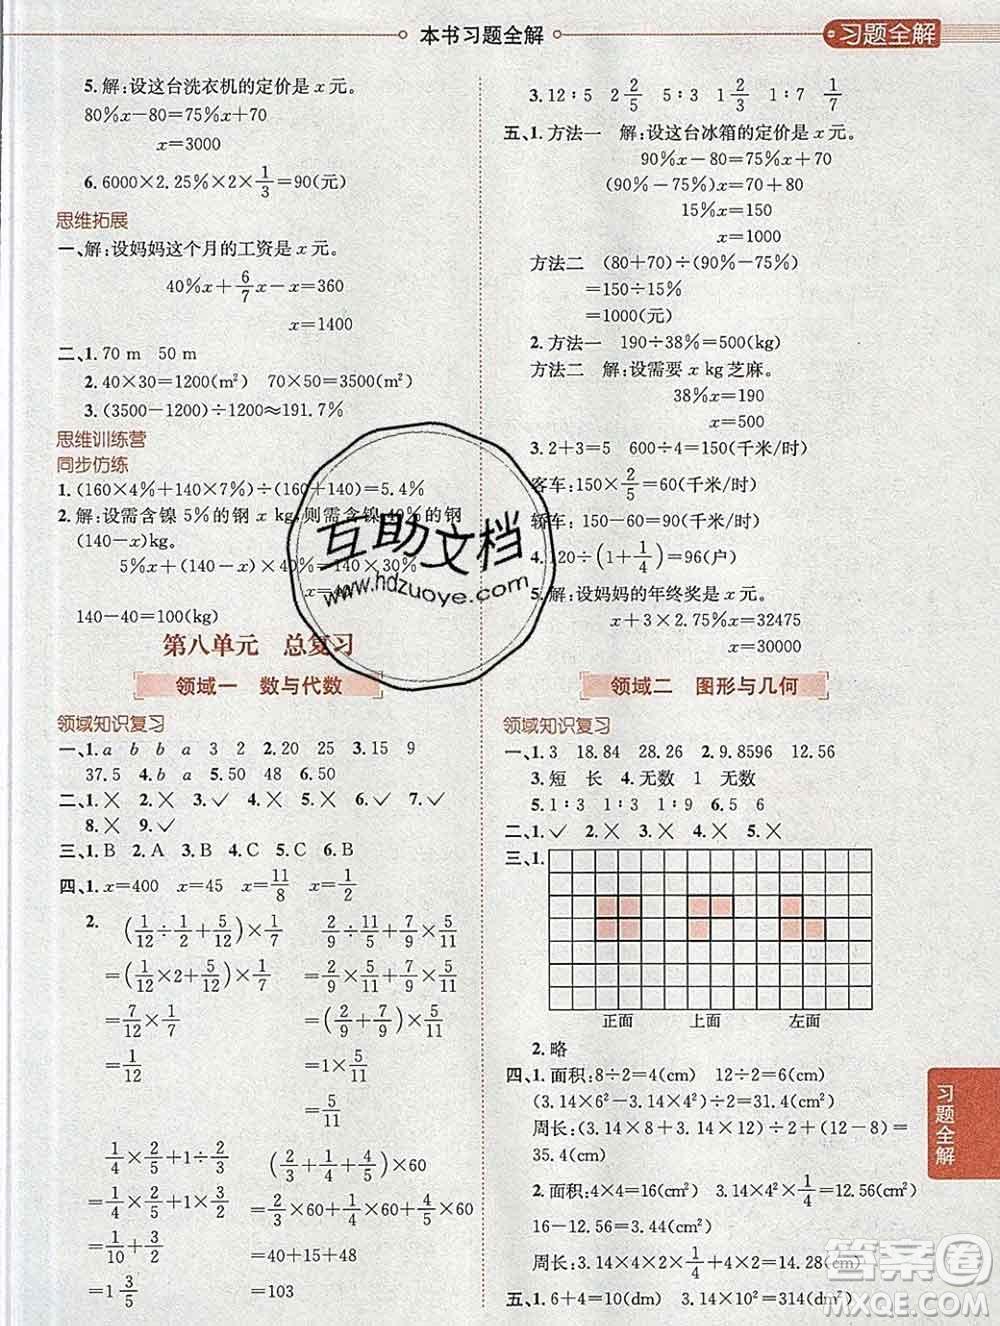 本书习题全解
习题全解
5. 解:设这台洗衣机的定价是 x 元。
80%x-80=75%x+70
x=3000
6. 6000×2.25%×2×1/3=90(元)
思维拓展
一、解:设妈妈这个月的工资是 x 元。
40%x+6/7x-x=360
x=1400
二、1. 70 m 50 m
2. 40×30=1200(m²) 70×50=3500(m²)
3. (3500-1200)÷1200≈191.7%
思维训练营
同步仿练
1. (160×4%+140×7%)÷(160+140)=5.4%
2. 解:设需含镍 5%的钢 x kg,则需含镍 40%的钢
(140-x)kg。
5%x+(140-x)×40%=140×30%
x=
140-40=100(kg)
第八单元 总复习
领域一 数与代数
领域知识复习
一、1. a b b a 3 2 2. 20 25 3. 15 9
37.5 4. b a 5. 50 48 6. 50
二、1. × 2. × 3. ✓ 4. × 5. × 6. ✓ 7. ✓
8. × 9. ✓
三、1. B 2. A 3. B 4. C 5. C 6. B
四、1. x=400 x=45 x=11/8 x=1/2
2. (1/12÷1/2+5/12)×1/7
=(1/12×2+5/12)×1/7
=7/12×1/7
=1/12
2/9÷11/5+7/9×5/11
=2/9×5/11+7/9×5/11
=(2/9+7/9)×5/11
=1×5/11
=5/11
1/4×2/5+1÷2/3
=1/4×2/5+1×3/2
=1/10+3/2
=1 3/5
(2/3+1/4+4/5)×60
=2/3×60+1/4×60+4/5×60
=40+15+48
=103
3. 12∶5 2 2/5 5∶3 1 2/3 1∶7 1/7
五、1. 方法一 解:设这台冰箱的定价是 x 元。
90%x-80=75%x+70
(90%-75%)x=70+80
15%x=150
x=1000
方法二 (80+70)÷(90%-75%)
=150÷15%
=1000(元)
2. 方法一 190÷38%=500(kg)
方法二 解:设需要 x kg芝麻。
38%x=190
x=500
3. 2+3=5 600÷4=150(千米/时)
客车:150×2/5=60(千米/时)
轿车:150-60=90(千米/时)
4. 120÷(1+1/4)=96(户)
5. 解:设妈妈的年终奖是 x 元。
x+3×2.75%x=32475
x=30000
领域二 图形与几何
领域知识复习
一、1. 3 18.84 28.26 2. 9.8596 12.56
3. 短 长 4. 无数 1 无数
5. 1∶3 1∶3 1∶9 6. 5 6
二、1. ✓ 2. × 3. × 4. × 5. ×
三、1.
正面 上面 左面
2. 略
四、1. 面积:8÷2=4(cm) 12÷2=6(cm)
(3.14×6²-3.14×4²)÷2=31.4(cm²)
周长:(3.14×8+3.14×12)÷2+(12-8)=
35.4(cm)
2. 面积:4×4=16(cm²) 3.14×4²×1/4=12.56(cm²)
16-12.56=3.44(cm²)
周长:3.14×4×2×1/4+4×2=14.28(cm)
五、1. 6+4=10(dm) 3.14×10²=314(dm²)
习题全解
互助文档
www.hdzuoye.com
答案圈
MXQE.COM